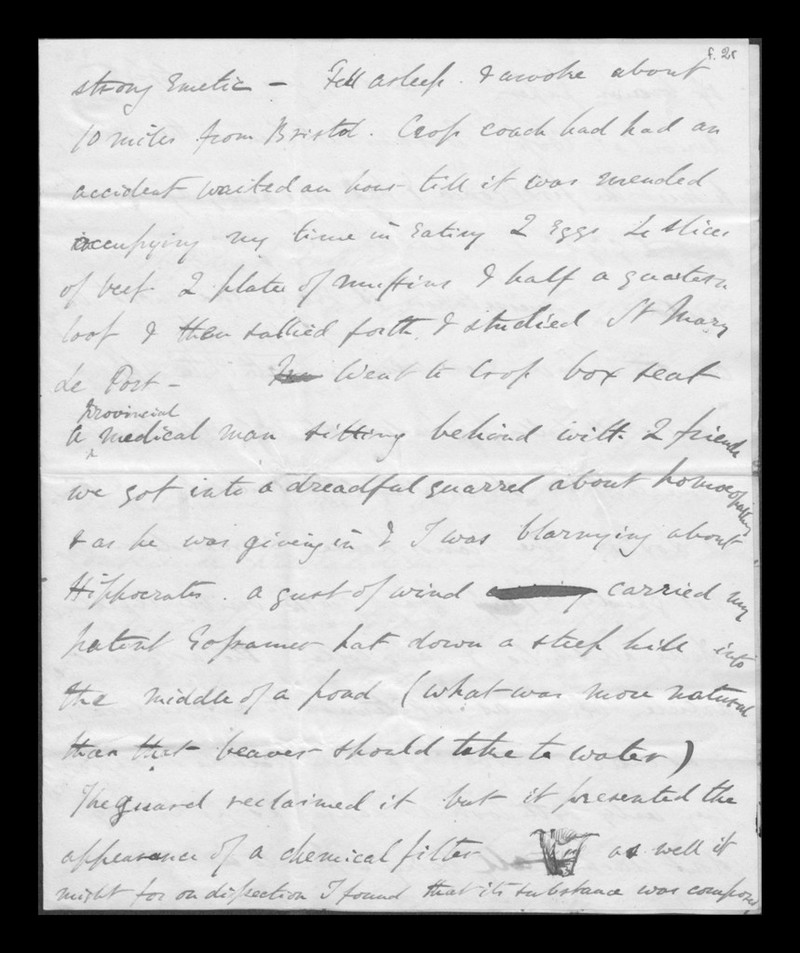 f. 2r
strong Emetic – Fell asleep. & awoke about
10 miles from Bristol. Crop coach had had an
accident waited an hour till it was mended
occupying my time in Eating 2 Eggs slices
of beef 2 plates of muffins & half a quartern
loof & then sallied forth & studied St Mary
Le Port – Went to Crop box seat
provincial
A medical man sitting behind with 2 friends
we got into a dreadful quarrel about homoeopathy
& as he was giving in & I was blarnying about
Hippocrates. a gust of wind carried my
patent Gossamer hat down a steep hill into
the middle of a pond (what was more natural
than that beaver should take to water)
The guard reclaimed it but it presented the
appearance of a chemical filter as well it
might for on dissection I found that its substance was composed